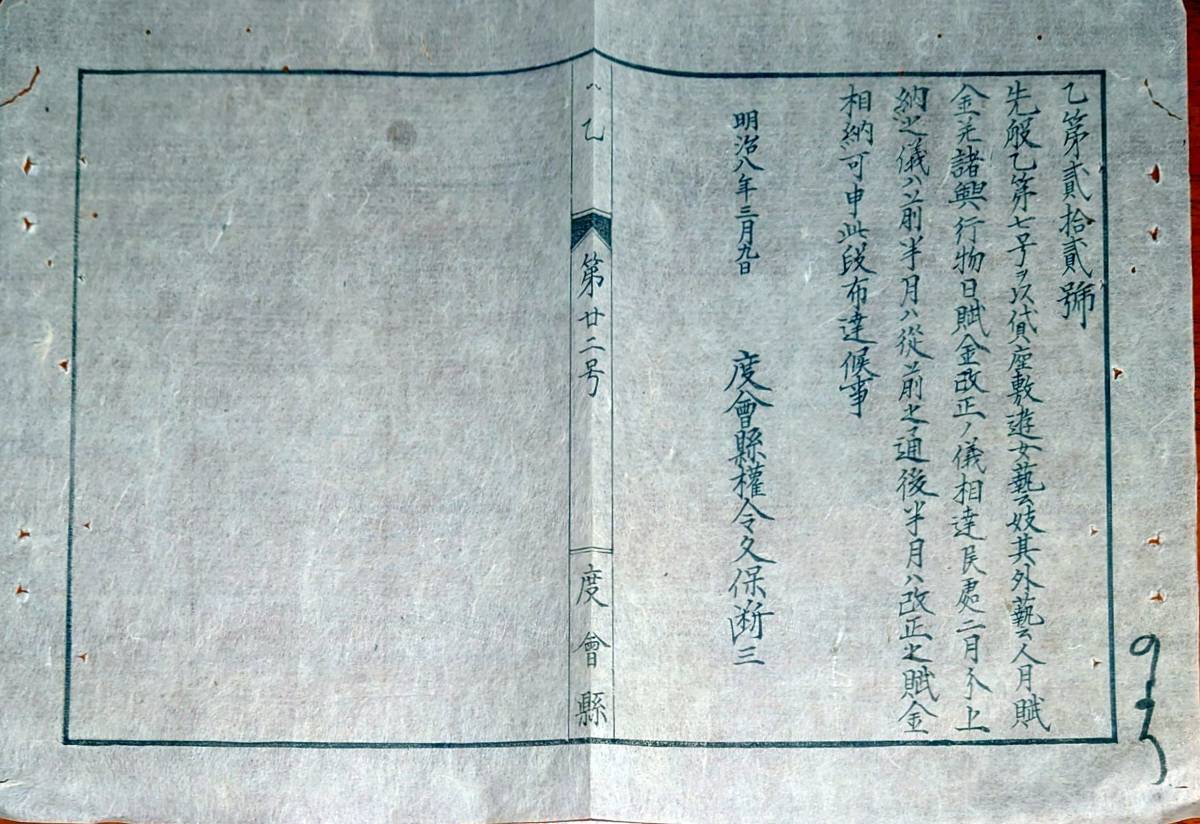 乙第貳拾貳號
先般乙第七号ヲ以貸座敷遊女藝妓其外藝人月賦
金并諸興行物日賦金改正ノ儀相達候處二月分上
納之儀ハ前半月ハ從前之通後半月ハ改正之賦金
相納可申此段布達候事
明治八年三月九日
度會縣權令久保断三
八乙
第廿二号
度會縣